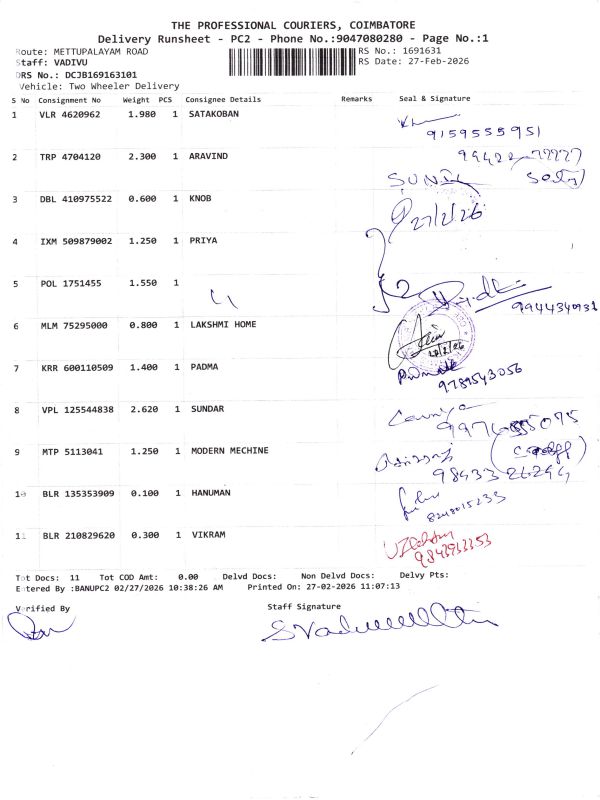 THE PROFESSIONAL COURIERS, COIMBATORE
Delivery Runsheet - PC2 - Phone No.:9047080280 - Page No.:1
Route: METTUPALAYAM ROAD RS No.: 1691631
Staff: VADIVU RS Date: 27-Feb-2026
DRS No.: DCJB169163101
Vehicle: Two Wheeler Delivery
S No Consignment No Weight PCS Consignee Details Remarks Seal & Signature
1 VLR 4620962 1.980 1 SATAKOBAN
9159555951
2 TRP 4704120 2.300 1 ARAVIND
SUNIL
3 DBL 410975522 0.600 1 KNOB
27/2/26
4 IXM 509879002 1.250 1 PRIYA
5 POL 1751455 1.550 1
9944340931
6 MLM 75295000 0.800 1 LAKSHMI HOME
7 KRR 600110509 1.400 1 PADMA
9789543056
8 VPL 125544838 2.620 1 SUNDAR
9 MTP 5113041 1.250 1 MODERN MECHINE
10 BLR 135353909 0.100 1 HANUMAN
11 BLR 210829620 0.300 1 VIKRAM
Tot Docs: 11 Tot COD Amt: 0.00 Delvd Docs: Non Delvd Docs: Delvy Pts:
Entered By :BANUPC2 02/27/2026 10:38:26 AM Printed On: 27-02-2026 11:07:13
Verified By Staff Signature